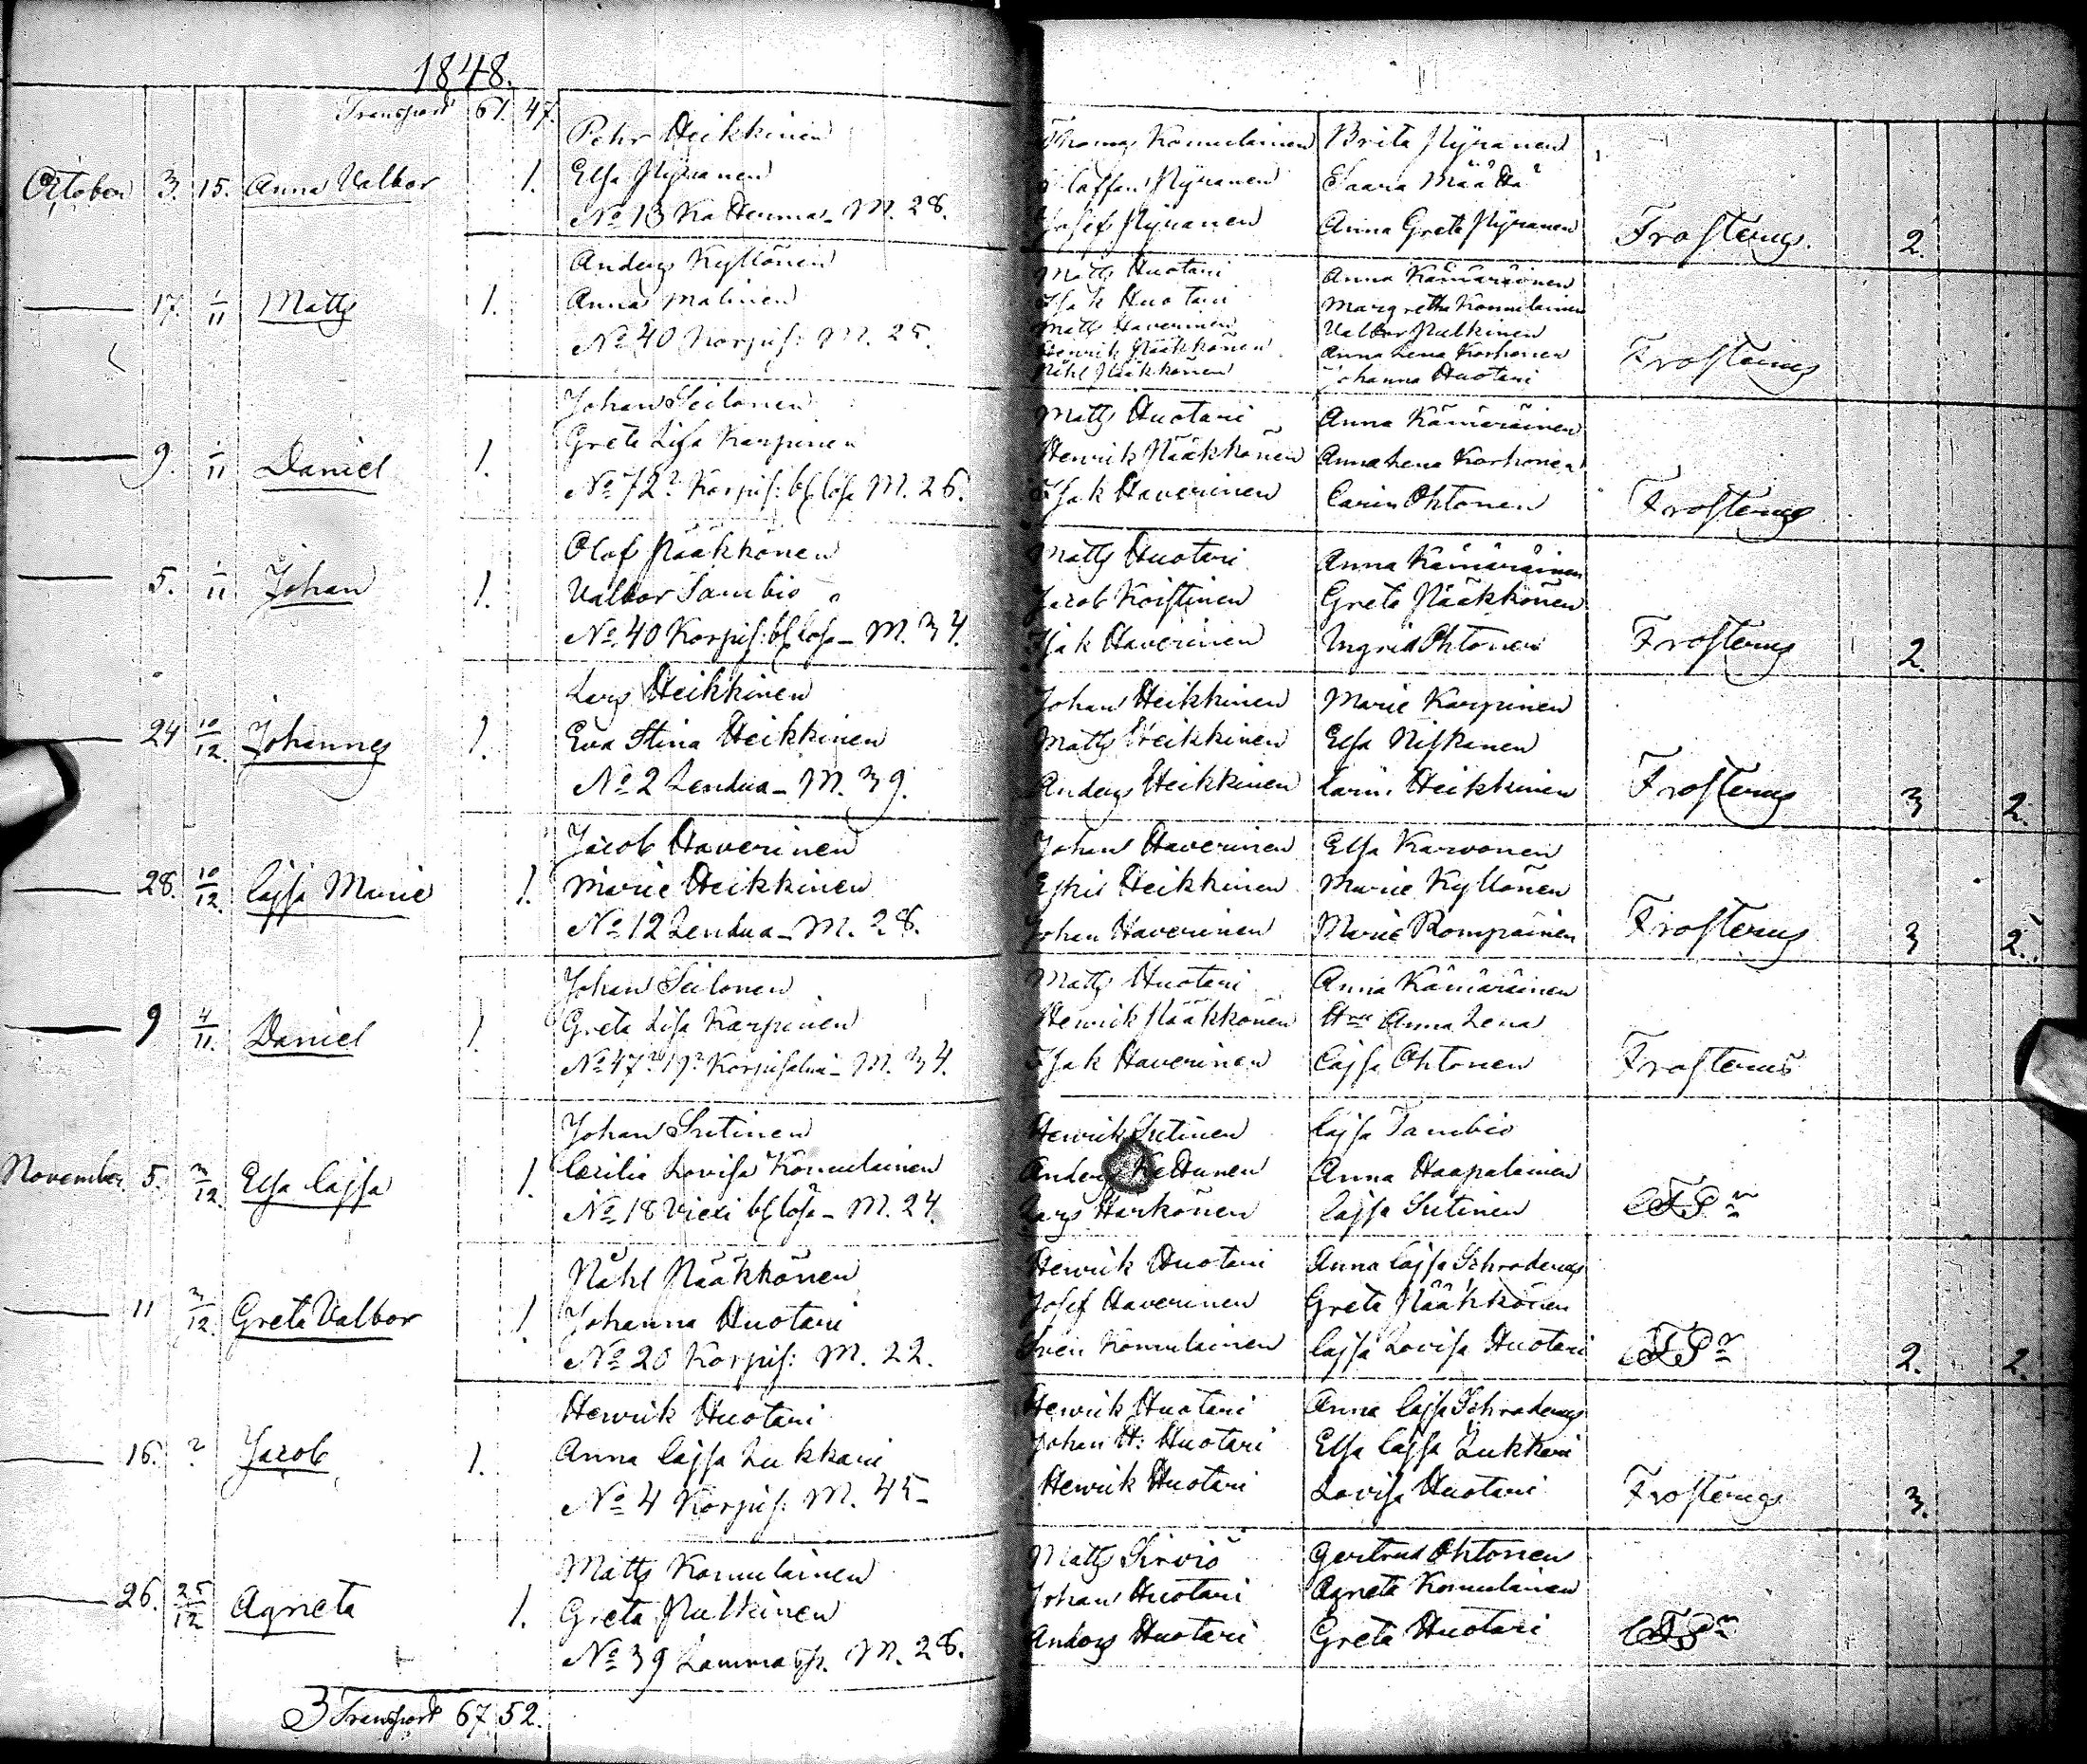 1848.
Transport 61. 47.
October 3. 15. Anna Valbor 1.
Pehr Heikkinen
Elsa Nyranen
No 13 Kattenma- M. 28.
Thomas Komulainen Brita Nyranen
Staffan Nyranen Saara Määttä
Josef Nyranen Anna Greta Nyranen Frosterus. 2.
— 17. 1/11 Matts 1.
Anders Kyllönen
Anna Malinen
No 40 Korpis: M. 25.
Matts Huotari Anna Kämäräinen
Isak Huotari Margretha Komulainen
Matts Haverinen Valbor Pulkinen
Henrik Nääkkönen Anna Lena Korhonen
Påhl Nääkkönen Johanna Huotari Frosterus
— 9. 1/11 Daniel 1.
Johan Seilonen
Greta Lisa Karpinen
No 72? Korpis: bs. lösa M. 26.
Matts Huotari Anna Kämäräinen
Henrik Nääkkönen Anna Lena Korhonen
Isak Haverinen Carin Ohtonen Frosterus
— 5. 1/11 Johan 1.
Olof Nääkkönen
Valbor Tambio
No 40 Korpis: bs lösa - M. 34.
Matts Huotari Anna Kämäräinen
Jacob Koistinen Greta Nääkkönen
Isak Haverinen Ingrid Ohtonen Frosterus 2.
— 24 10/12. Johannes 1.
Lars Heikkinen
Eva Stina Heikkinen
No 2 Lendua - M. 39.
Johan Heikkinen Marie Karpinen
Matts Heikkinen Elsa Niskanen
Anders Heikkinen Carin Heikkinen Frosterus 3 2.
— 28. 10/12. Cajsa Marie 1.
Jacob Haverinen
Marie Heikkinen
No 12 Lendua - M. 28.
Johan Haverinen Elsa Karvonen
Eskil Heikkinen Marie Kyllönen
Johan Haverinen Marie Rompainen Frosterus 3 2.
— 9 4/11. Daniel 1.
Johan Seilonen
Greta Lisa Karpinen
No 47? 19? Korpisalmi - M. 34.
Matts Huotari Anna Kämäräinen
Henrik Nääkkönen Hru Anna Lena
Isak Haverinen Cajsa Ohtonen Frosterus
November. 5. 3/12 Elsa Cajsa 1.
Johan Sutinen
Cæcilia Lovisa Komulainen
No 18 Viexi bs lösa - M. 24.
Henrik Sutinen Cajsa Tambio
Anders Kettunen Anna Haapalainen
Lars Harkönen Cajsa Sutinen
— 11 3/12. Greta Valbor 1.
Påhl Nääkkönen
Johanna Huotari
No 20 Korpis: M. 22.
Henrik Huotari Anna Cajsa Schroderus
Josef Haverinen Greta Nääkkönen
Sven Komulainen Cajsa Lovisa Huotari 2. 2.
— 16. ? Jacob 1.
Henrik Huotari
Anna Cajsa Lukkari
No 4 Korpis: M. 45-
Henrik Huotari Anna Cajsa Schroderus
Johan H: Huotari Elsa Cajsa Lukkari
Henrik Huotari Lovisa Huotari Frosterus 3.
— 26. 25/12 Agneta 1.
Matts Komulainen
Greta Pulkinen
No 39 Lammasp. M. 28.
Matts Sirviö Gertrud Ohtonen
Johan Huotari Agneta Komulainen
Anders Huotari Greta Huotari
Transport 67 52.